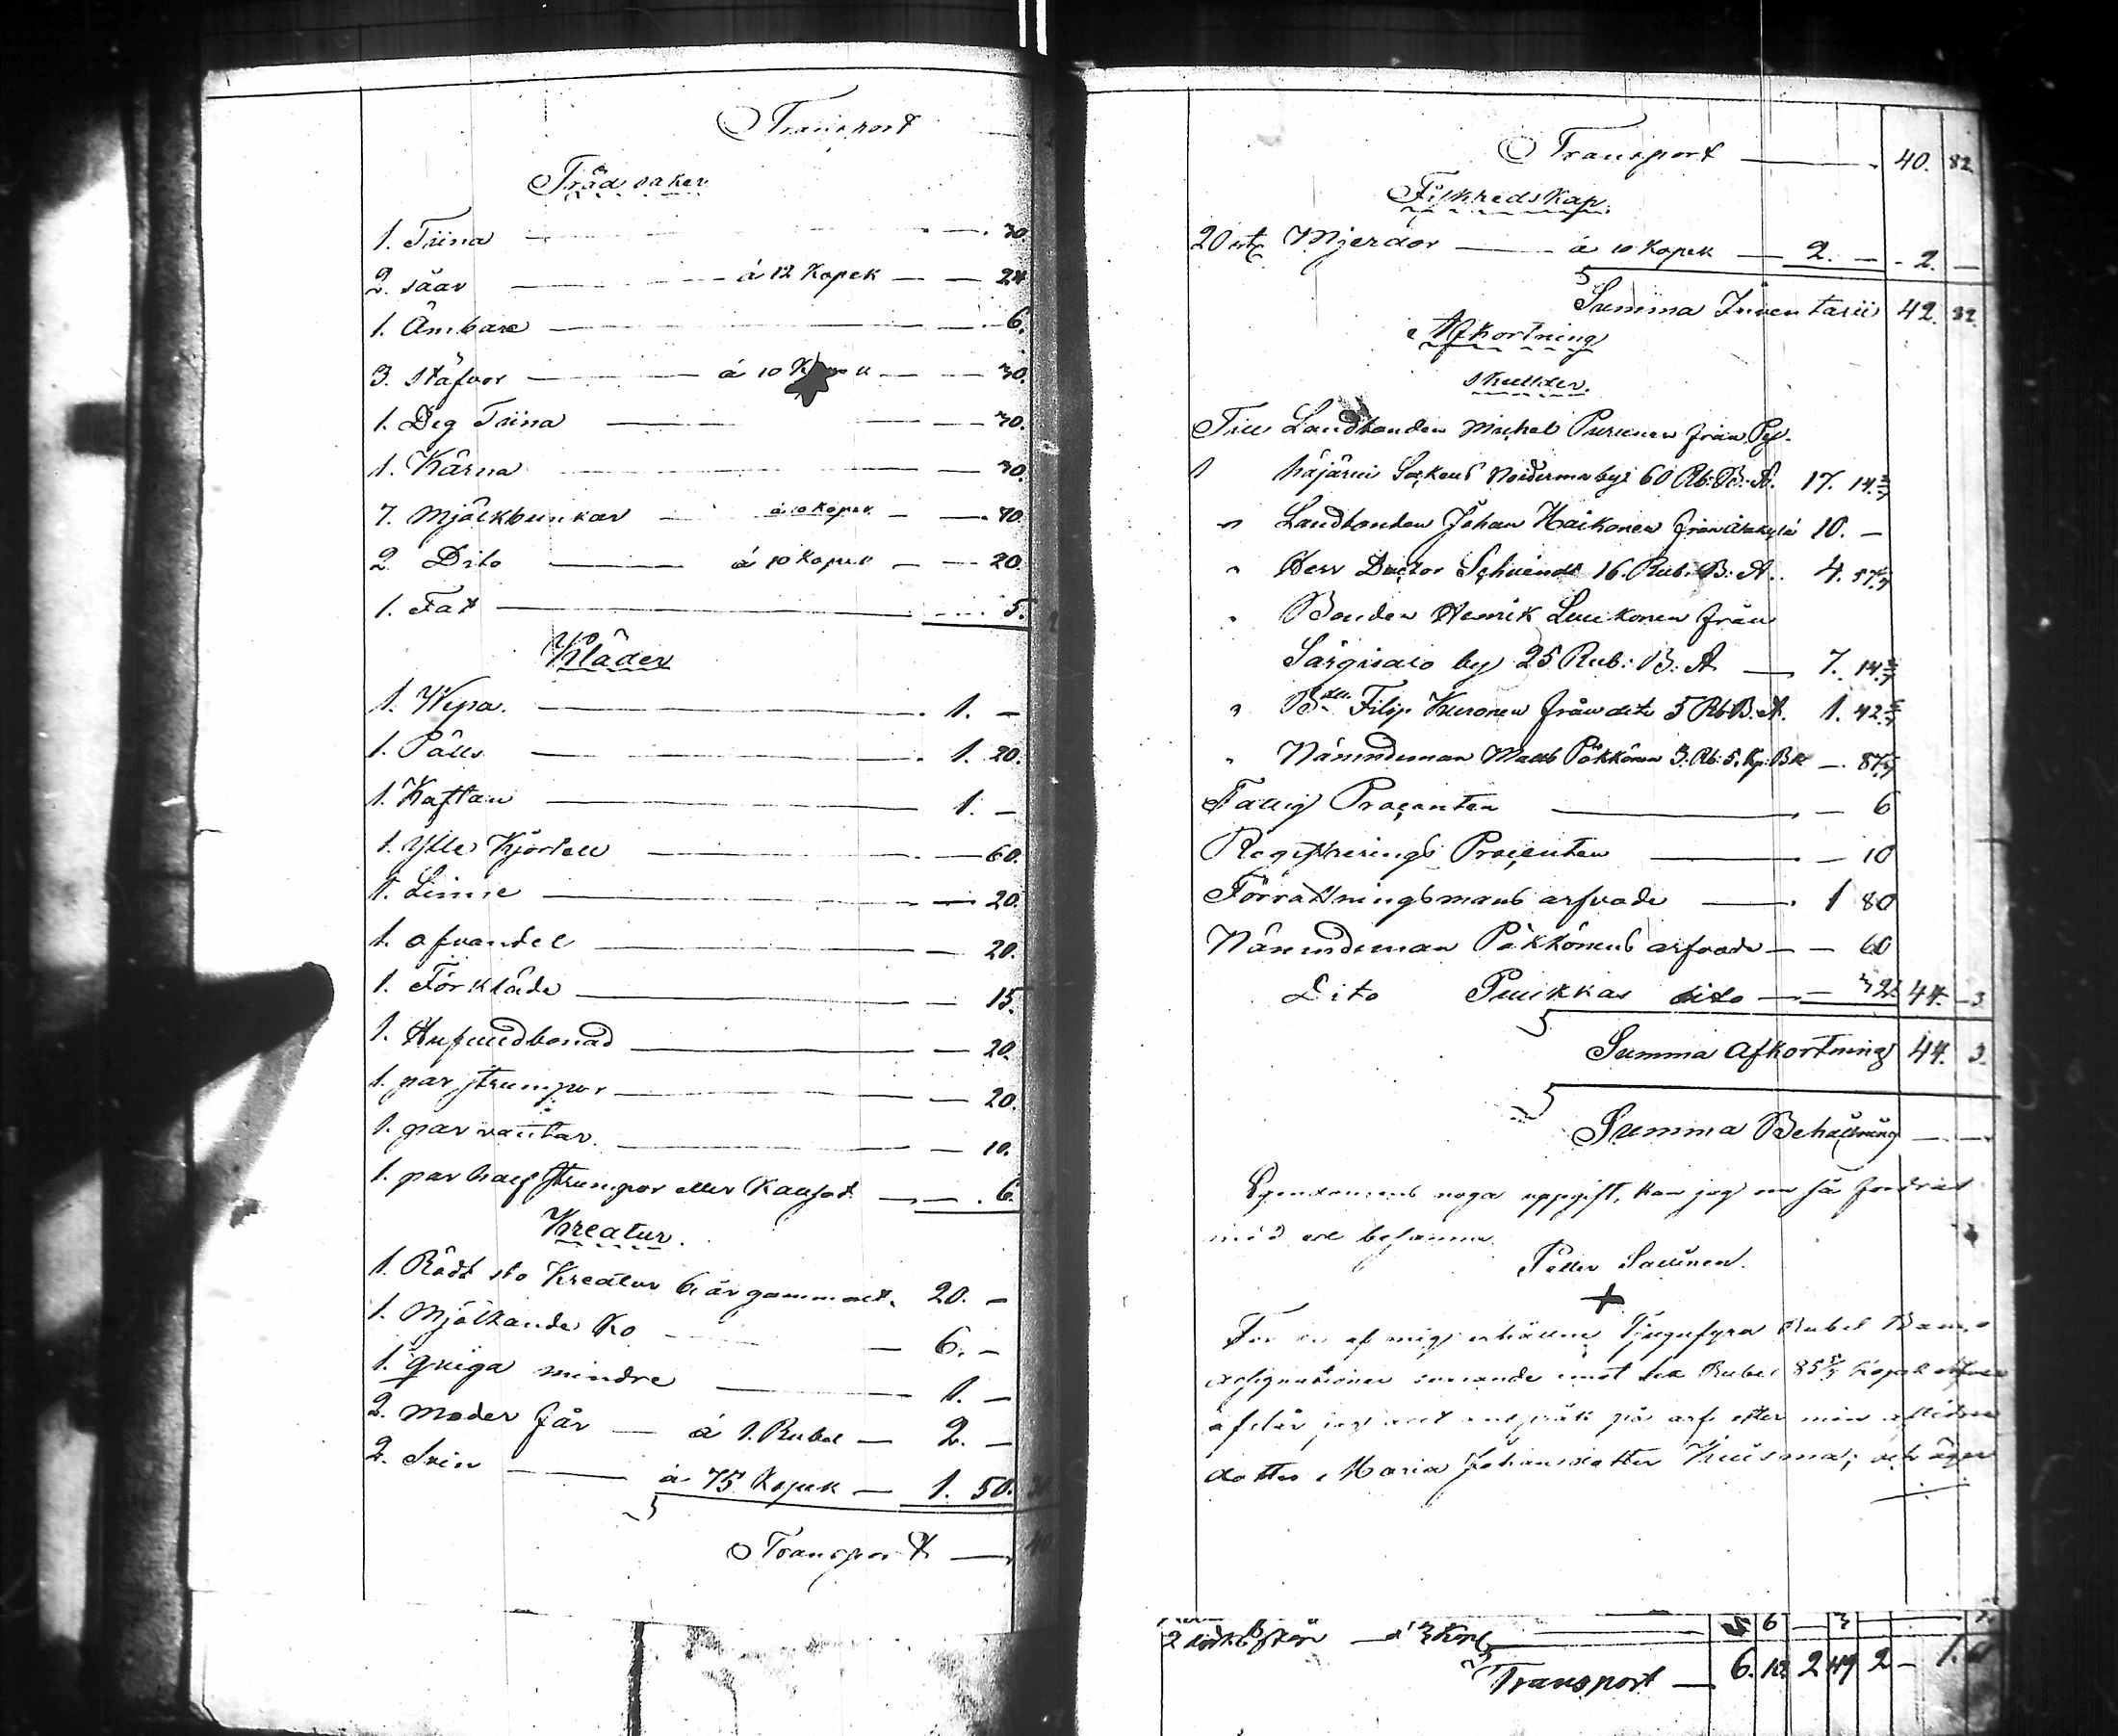 Transport
Träd saker
1. Tiina — 30.
2. såar — á 12 Kopek — 24
1. Ämbare — 6.
3. stäfvor — á 10 — 30.
1. Deg Tiina — 30.
1. Kärna — 30.
7. Mjölkbunkar — á 10 Kopek — 70.
2 Dito — á 10 Kopek — 20.
1. Fat — 5.
Kläder
1. Wepa. — 1. —
1. Pälls — 1. 20.
1. Kaftan — 1. —
1. Ylle Kjortell — 60.
1. Linne — 20.
1. ofvandel — 20.
1. Förkläde — 15.
1. Hufvudbonad — 20.
1. par strumpor — 20.
1. par vantar. — 10.
1. par half strumpor eller — 6.
Kreatur.
1. Rödt sto Kreatur 6 år gammalt. 20. —
1. Mjölkande Ko — 6. —
1. quiga mindre — 1. —
2. moder får — á 1. Rubel — 2. —
2. Svin — á 75 Kopek — 1. 50.
Transport —
Transport — 40. 82.
Fiskredskap.
20 st Mjerdor — á 10 Kopek — 2. — 2. —
Summa Inventarii 42. 82.
Afkortning
skulder.
Till Landbonden Michel Purunen från Py-
häjärvi Sokens by 60 Rb. B: A. 17. 14 2/7
" Landbonden Johan Haikonen från 10. —
" Herr Doctor 16. Rub. B: A. 4. 57 1/7
" Bonden Henrik Luukonen från
Särgisalo by 25 Rub: B: A — 7. 14 2/7
" Filip Kuronen från dito 5 Rb B. A. 1. 42 6/7
" Nämndeman Mats Pökkönen 3. Rb: 5. Kp: — 87 1/7
Fattig Procenten — 6
Registrerings Procenten — 10
Förrättningsmans arfvode — 1 80
Nämndeman Pökkönens arfvode — 60
Dito Puukkas dito — 32. 44. 3
Summa Afkortning 44. 3.
Summa Behållning — —
Egendomens noga uppgift, kan jag om så fordras
med ed besanna.
Petter Saunen.
+
af mig erhållne Tjugufyra Rubel Banco
assignationer svarande mot sex Rubel 85 5/7 Kopek silfver
afstår jag allt anspråk på arf efter min aflidne
dotter Maria Johansdotter Kuisma; och äger
Transport — 6. 12 2 49 2 — 1.